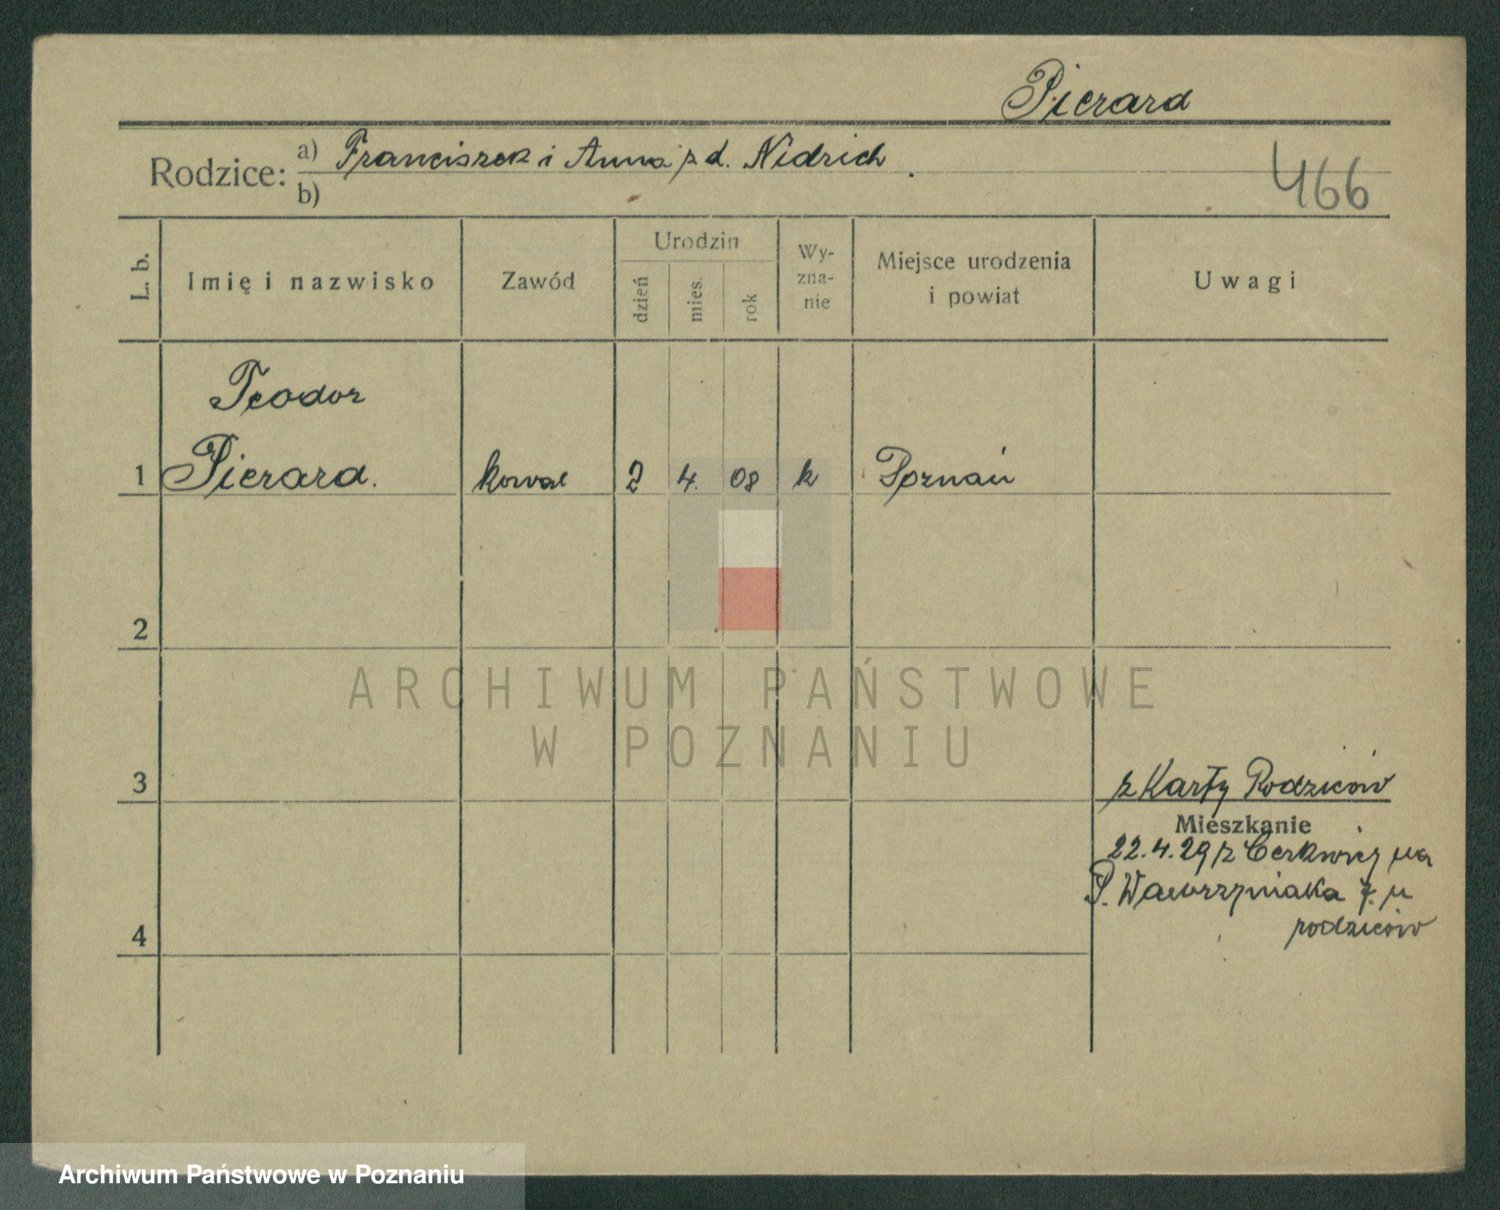 Pierard
Rodzice: a) Franciszek i Anna z d. Nidrich
b)
466
L. b.
Imię i nazwisko
Zawód
Urodzin
dzień
mies.
rok
Wy-
zna-
nie
Miejsce urodzenia
i powiat
Uwagi
Teodor
1 Pierard. kowal 2 4. 08 k Poznań
2
ARCHIWUM PAŃSTWOWE
W POZNANIU
3
z Karty Rodziców
Mieszkanie
22.4.29 z Cerkwicy na
P. Wawrzyniaka 7. u
rodziców
4
Archiwum Państwowe w Poznaniu